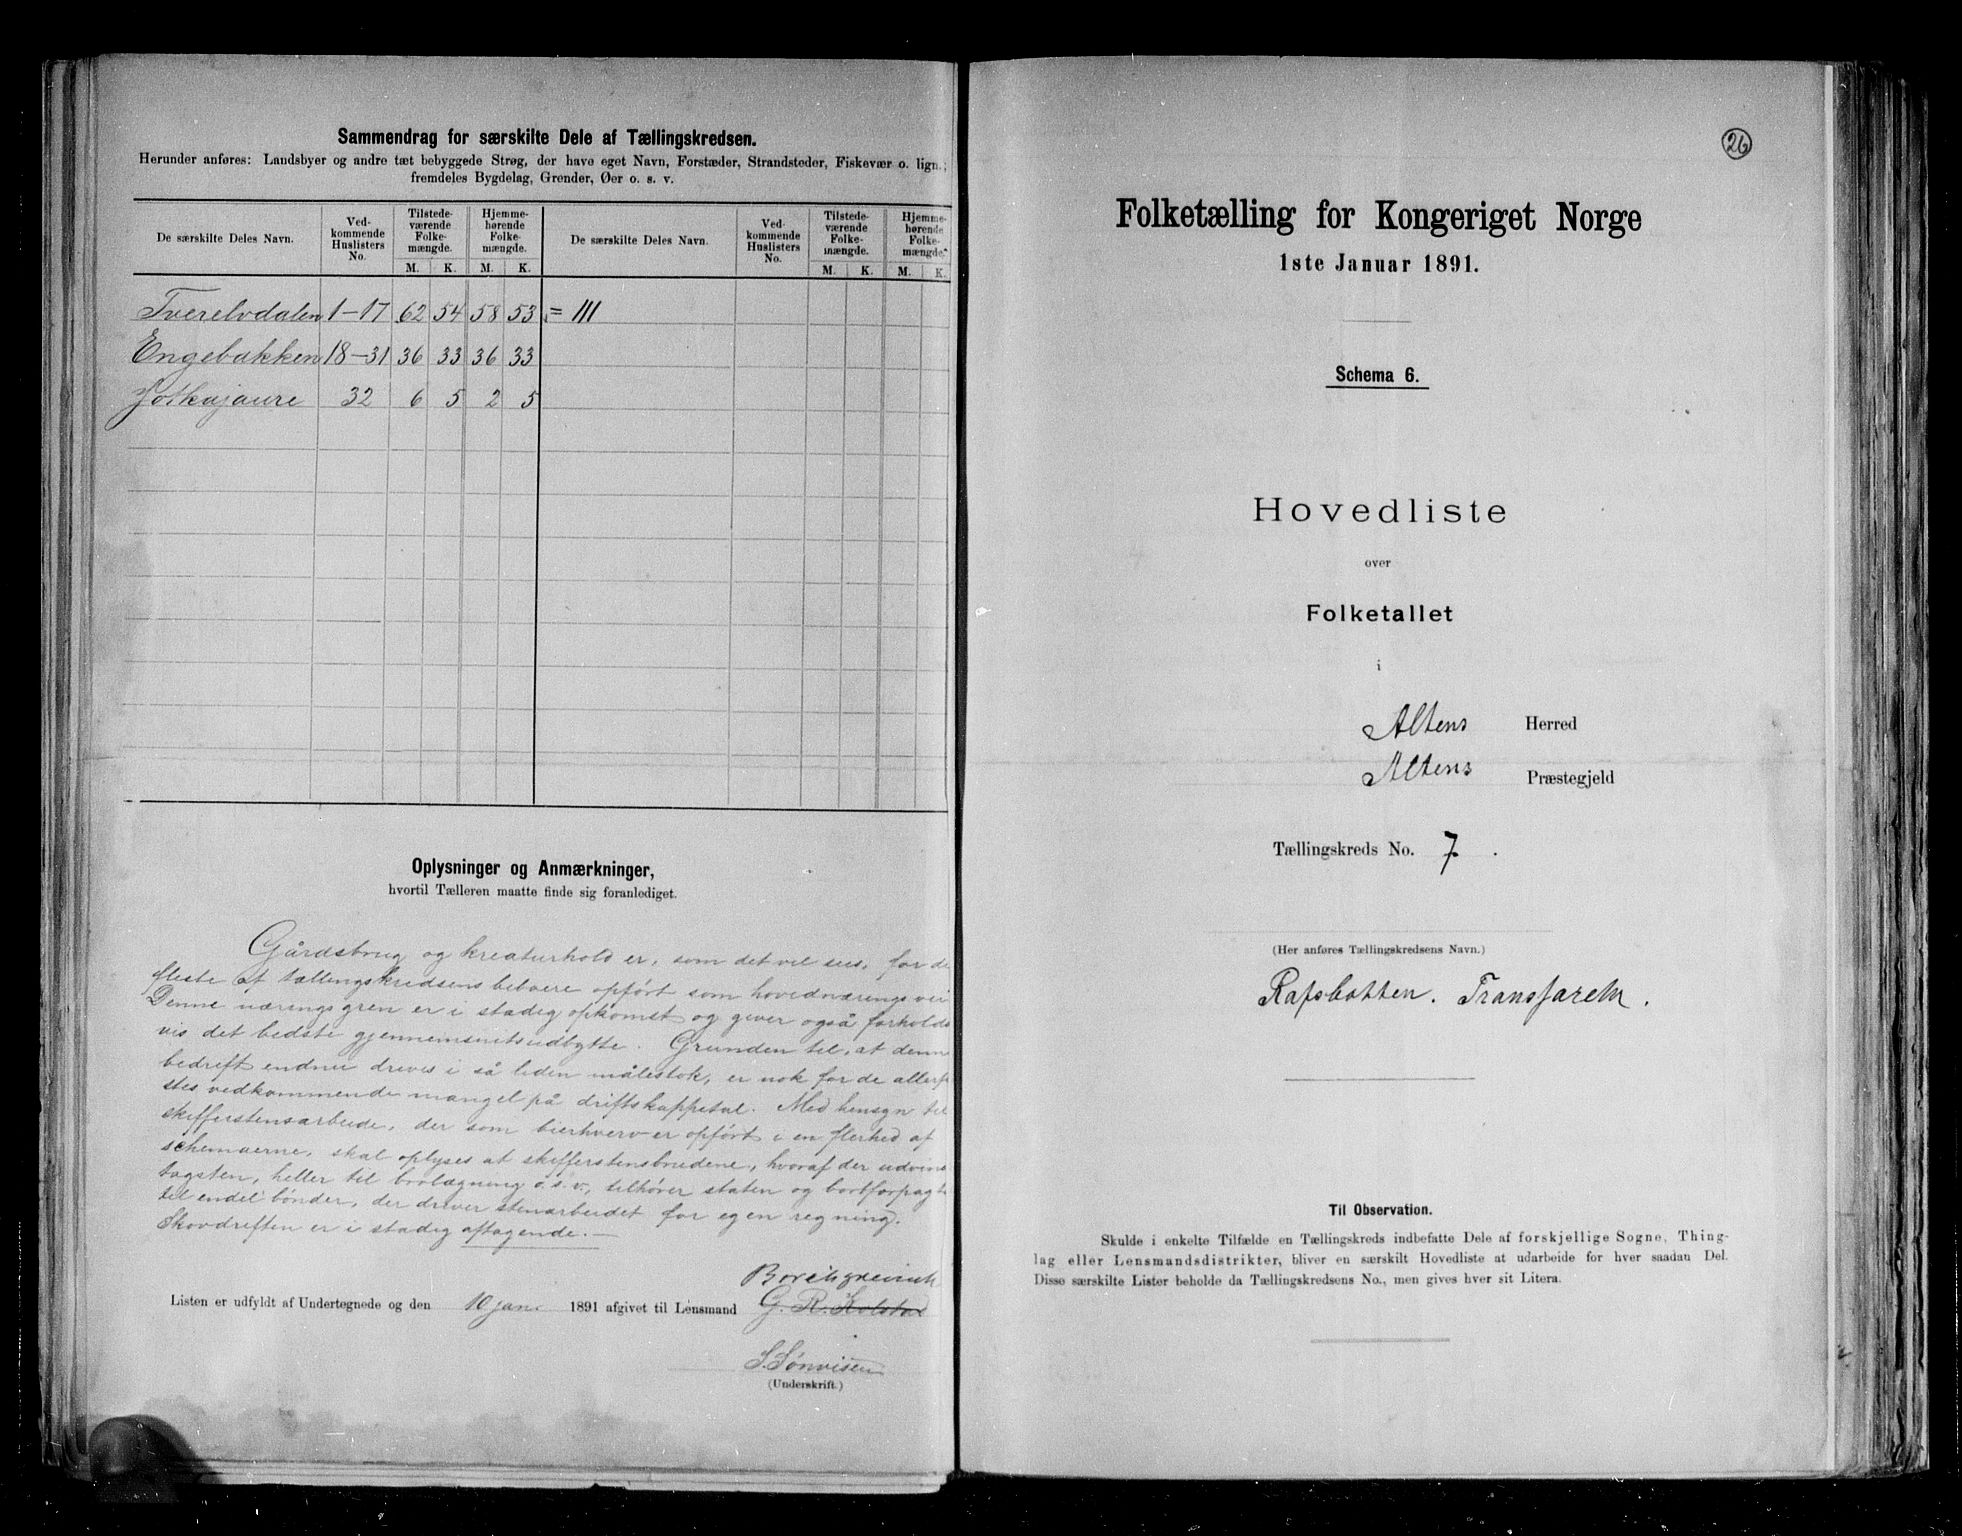 Sammendrag for særskilte Dele af Tællingskredsen.
Herunder anføres: Landsbyer og andre tæt bebyggede Strøg, der have eget Navn, Forstæder, Strandsteder, Fiskevær o. lign.;
fremdeles Bygdelag, Grender, Øer o. s. v.
De særskilte Deles Navn. Ved-kommende Huslisters No. Tilstede-værende Folke-mængde. Hjemme-hørende Folke-mængde. De særskilte Deles Navn. Ved-kommende Huslisters No. Tilstede-værende Folke-mængde. Hjemme-hørende Folke-mængde.
M. K. M. K. M. K. M. K.
Tverelvdalen 1-17 62 54 58 53 = 111
Engebakken 18-31 36 33 36 33
Jotkajaure 32 6 5 2 5
Oplysninger og Anmærkninger,
hvortil Tælleren maatte finde sig foranlediget.
Gårdsbrug og kreaturhold er, som det vil sees, for de
fleste af tællingskredsens beboere opført som hovednæringsvei
Denne næringsgren er i stadig opkomst og giver også forholds
vis det bedste gjennemsnitsudbytte. Grunden til, at denne
bedrift endnu drives i så liden målestok, er nok for de allerfl
stes vedkommende mangel på driftskappetal. Med hensyn til
skifferstensarbeide, der som bierhverv er opført i en flerhed af
schemaerne, skal oplyses at skifferstensbrudene, hvoraf der udvine
tagsten, heller til brolægning o.s.v., tilhører staten og bortforpagt
til endel bønder, der driver stenarbeidet for egen regning.
Skovdriften er i stadig aftagende.—
Borchgrevink
Listen er udfyldt af Undertegnede og den 10 jan. 1891 afgivet til Lensmand G. R. Kolstad
S. Sønvisen
(Underskrift.)
26
Folketælling for Kongeriget Norge
1ste Januar 1891.
Schema 6.
Hovedliste
over
Folketallet
i
Altens Herred
Altens Præstegjeld
Tællingskreds No. 7.
(Her anføres Tællingskredsens Navn.)
Rafsbotten. Transfarelv.
Til Observation.
Skulde i enkelte Tilfælde en Tællingskreds indbefatte Dele af forskjellige Sogne, Thing-
lag eller Lensmandsdistrikter, bliver en særskilt Hovedliste at udarbeide for hver saadan Del.
Disse særskilte Lister beholde da Tællingskredsens No., men gives hver sit Litera.